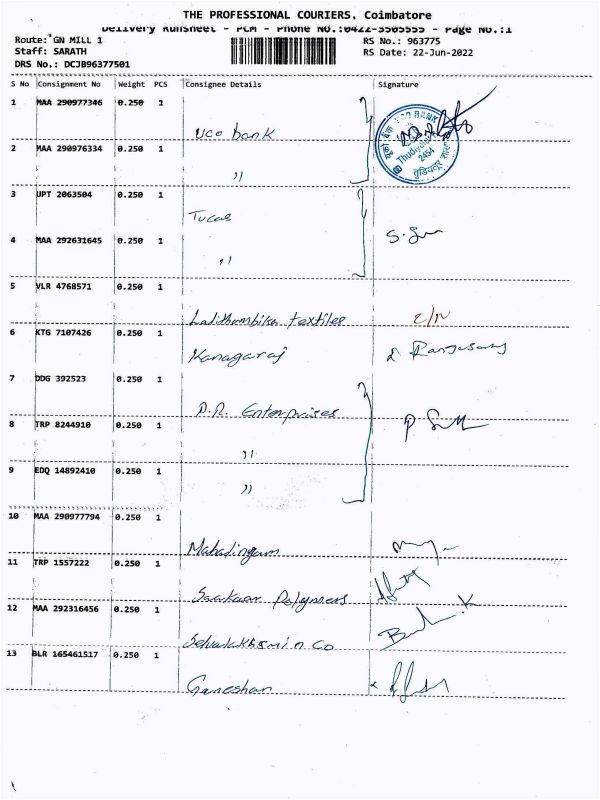 THE PROFESSIONAL COURIERS, Coimbatore
Delivery Runsheet - PCM - Phone No.:0422-3505555 - Page No.:1
Route: GN MILL 1
RS No.: 963775
Staff: SARATH
RS Date: 22-Jun-2022
DRS No.: DCJB96377501
S No Consignment No Weight PCS Consignee Details Signature
1 MAA 290977346 0.250 1
UCO bank
UCO BANK
Thudiyalur
2454
2 MAA 290976334 0.250 1
,,
3 UPT 2063504 0.250 1
Tucas
4 MAA 292631645 0.250 1
,,
5 VLR 4768571 0.250 1
Lalithambika textiles
6 KTG 7107426 0.250 1
Kanagaraj
7 DDG 392523 0.250 1
P.R. Enterprises
8 TRP 8244910 0.250 1
,,
9 EDQ 14892410 0.250 1
,,
10 MAA 290977794 0.250 1
Mahalingam
11 TRP 1557222 0.250 1
Saakaar Polymers
12 MAA 292316456 0.250 1
Selvalakshmi n Co
13 BLR 165461517 0.250 1
Ganeshan